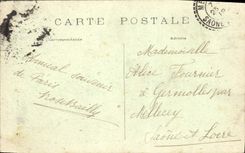 CARTE POSTALE
Correspondance
Amical souvenir
de Paris
Mademoiselle
Alice Fournier
à Germolles par
Mellecey
Saône et Loire